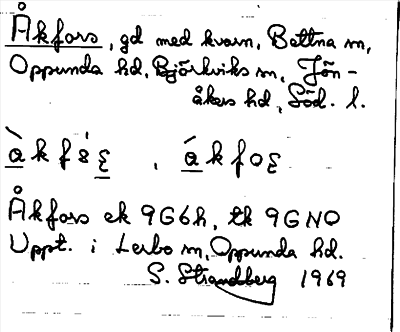 Åkfors, gd med kvarn, Bettna sn,
Oppunda hd, Björkviks sn, Jön-
åkers hd, Söd. l.
Åkfors ek 9G6h, tk 9GNO
Uppt. i Lerbo sn, Oppunda hd.
S. Strandberg 1969